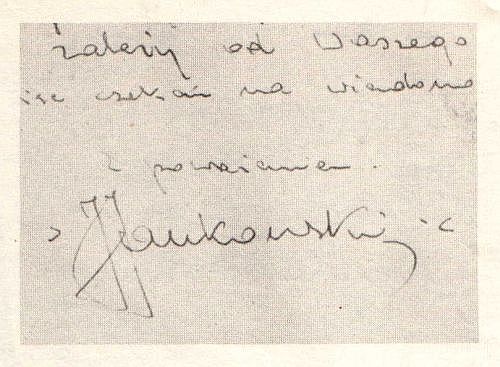 zależy od Waszego
ięc czekam na wiadomo
z poważaniem.
Jankowski